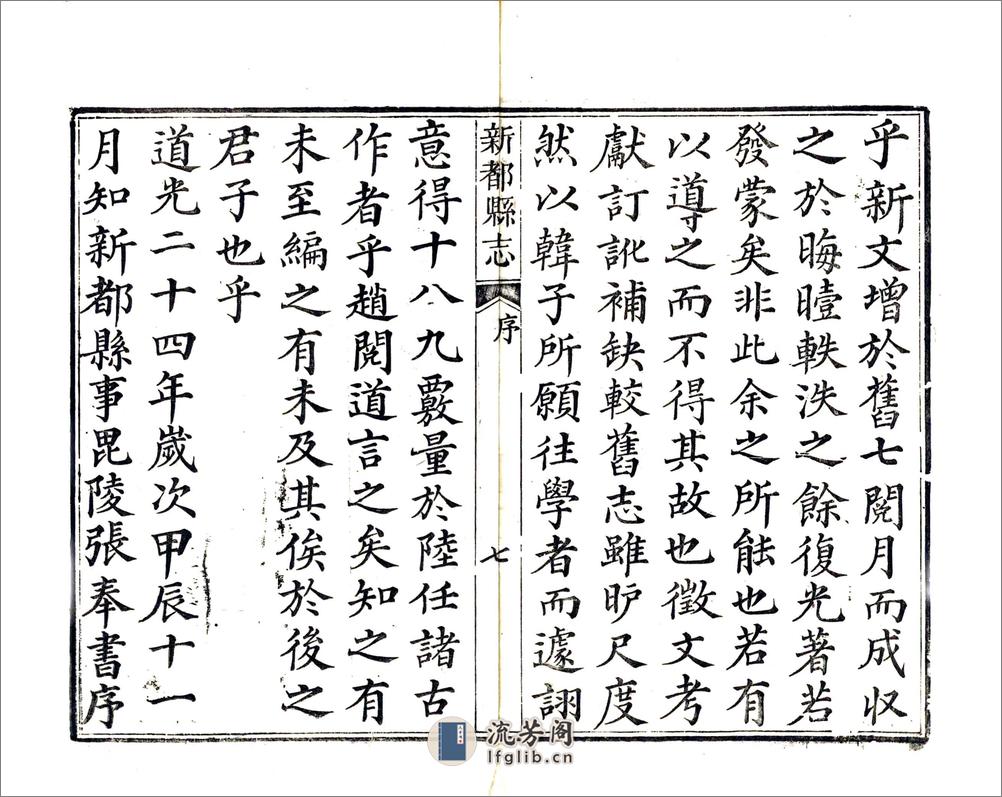 乎新文增於舊七閱月而成収
之於晦曀軼泆之餘復光著若
發蒙矣非此余之所能也若有
以導之而不得其故也徵文考
獻訂訛補缺較舊志雖昈尺度
然以韓子所願往學者而遽詡
新都縣志
序
七
意得十八九覈量於陸任諸古
作者乎趙閱道言之矣知之有
未至編之有未及其俟於後之
君子也乎
道光二十四年歲次甲辰十一
月知新都縣事毘陵張奉書序
流芳阁
lfglib.cn